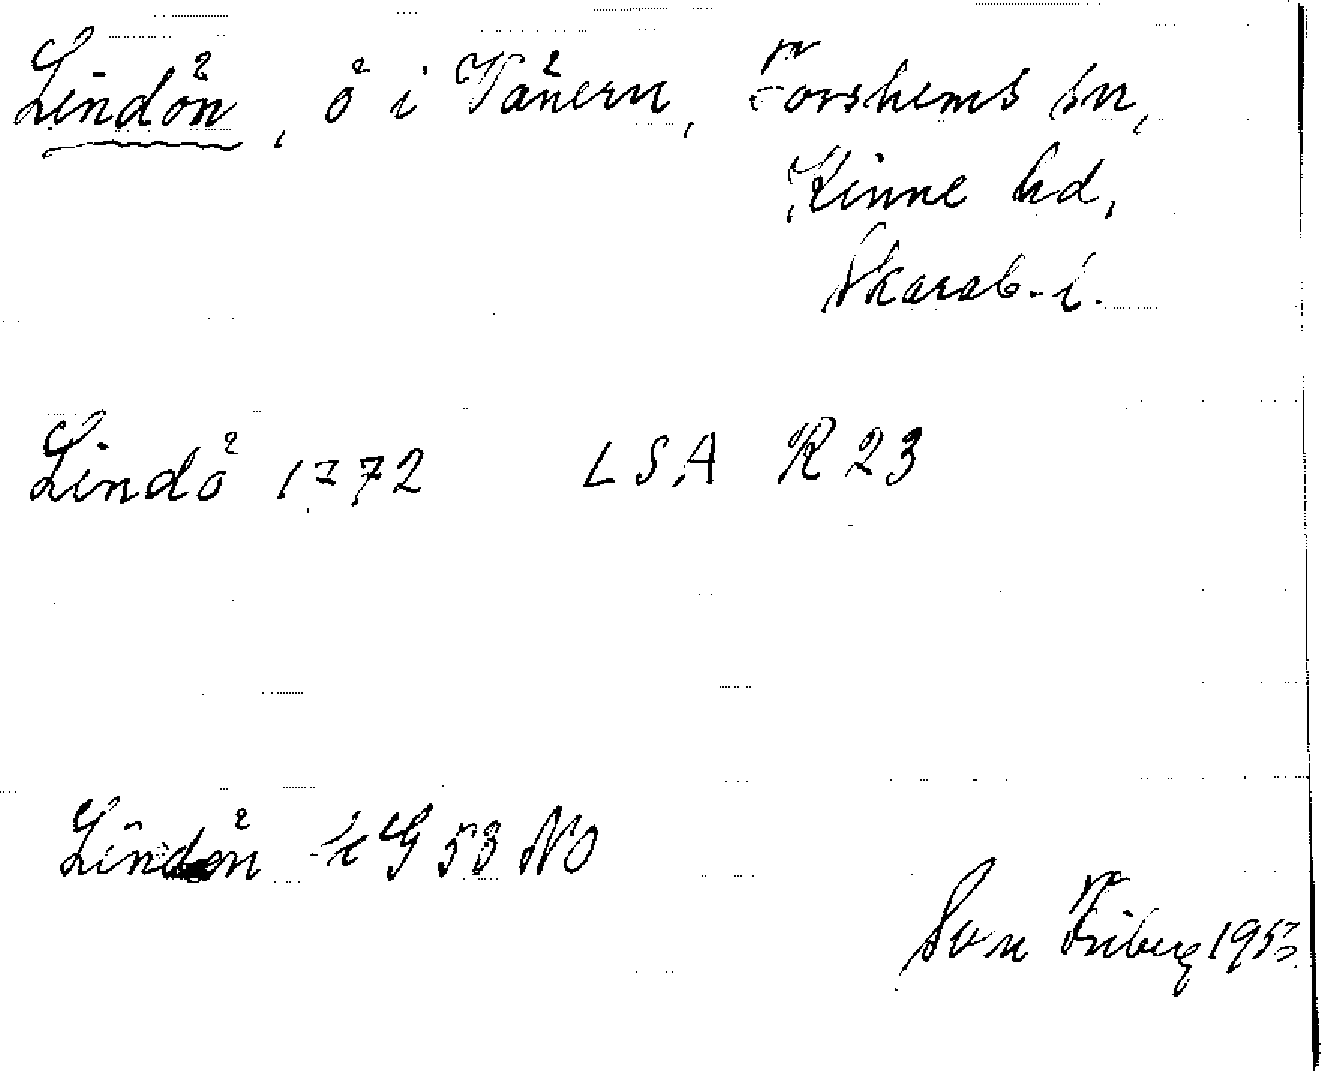 Lindön, ö i Vänern, Forshems sn,
Kinne hd,
Skarab. l.
Lindö 1772 LSA R 23
Lindön tG 53 NO
Sven Friberg 1953